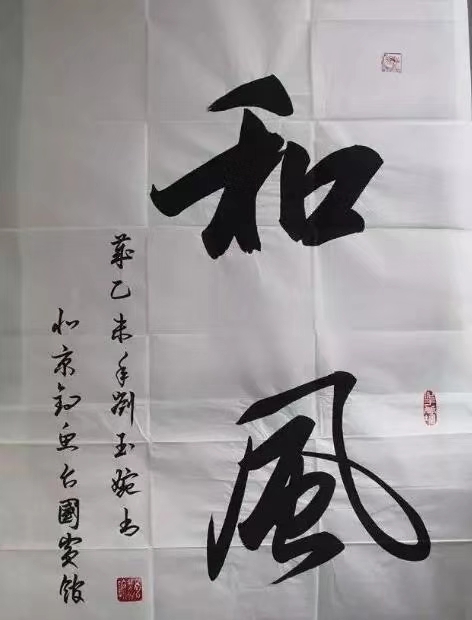 和風
歲乙未年劉玉婉書
北京釣魚台國賓館